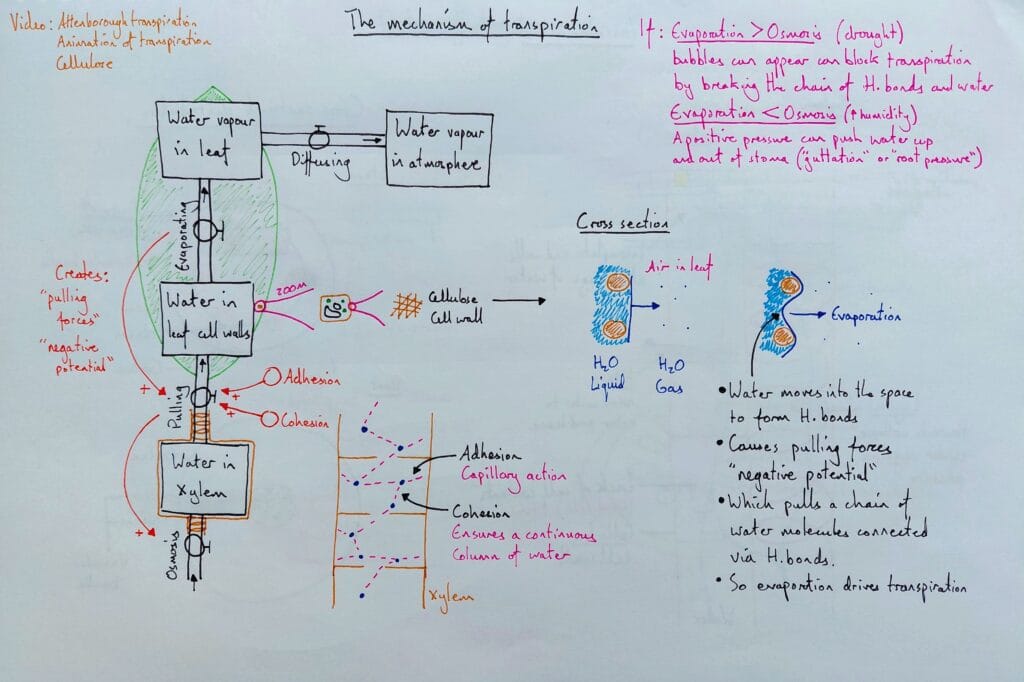 Video: Attenborough transpiration
Animation of transpiration
Cellulose
The mechanism of transpiration
If: Evaporation > Osmosis (drought)
bubbles can appear can block transpiration
by breaking the chain of H. bonds and water
Evaporation < Osmosis (↑ humidity)
A positive pressure can push water up
and out of stoma ("guttation" or "root pressure")
Water vapour
in leaf
Diffusing
Water vapour
in atmosphere
Evaporating
Creates:
"pulling
forces"
"negative
potential"
Water in
leaf cell walls
200M
Cellulose
Cell wall
Cross section
Air in leaf
H₂O
Liquid
H₂O
Gas
Evaporation
Pulling
+
+
+
Adhesion
Cohesion
Water in
Xylem
+
Osmosis
Adhesion
Capillary action
Cohesion
Ensures a continuous
Column of water
Xylem
• Water moves into the space
to form H. bonds
• Causes pulling forces
"negative potential"
• Which pulls a chain of
water molecules connected
via H. bonds.
• So evaportion drives transpiration